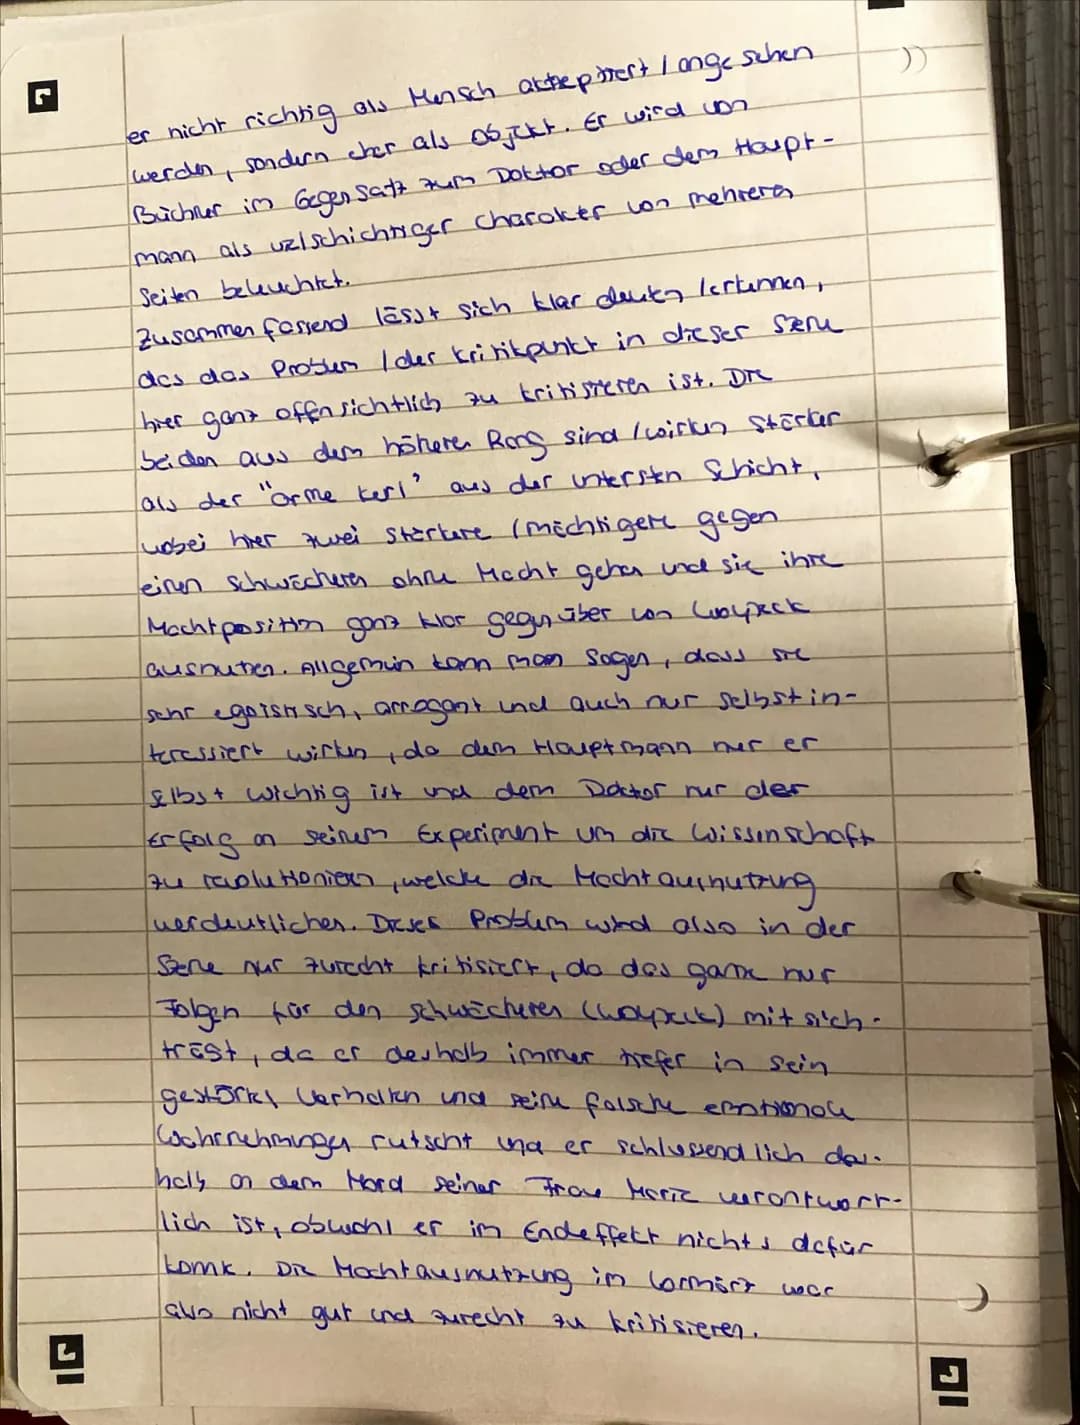 er nicht richtig als Mensch akzeptiert / angesehen
werden, sondern eher als Objekt. Er wird von
Büchner im Gegensatz zum Doktor oder dem Haupt-
mann als vielschichtiger Charakter von mehreren
Seiten beleuchtet.
Zusammenfassend lässt sich klar deuten / erkennen,
das das Problem / der Kritikpunkt in dieser Szene
hier ganz offensichtlich zu kritisieren ist. Die
beiden aus dem höheren Rang sind / wirken stärker
als der "arme Kerl" aus der untersten Schicht,
wobei hier zwei Stärkere / mächtigere gegen
einen schwächeren ohne Macht gehen und sie ihre
Machtposition ganz klar gegenüber von Woyzeck
ausnutzen. Allgemein kann man sagen, dass sie
sehr egoistisch, arrogant und auch nur selbstin-
teressiert wirken, da dem Hauptmann nur er
selbst wichtig ist und dem Doktor nur der
Erfolg an seinem Experiment um die Wissenschaft
zu revolutionieren, welche die Machtausnutzung
verdeutlichen. Dieses Problem wird also in der
Szene nur zurecht kritisiert, da das ganze nur
Folgen für den schwächeren (Woyzeck) mit sich
trägt, da er deshalb immer tiefer in sein
gestörtes Verhalten und seine falsche emotionale
Wahrnehmungen rutscht und er schlussendlich des-
halb an dem Mord seiner Frau Marie verantwort-
lich ist, obwohl er im Endeffekt nichts dafür
konnte. Die Machtausnutzung im Vormärz war
also nicht gut und zurecht zu kritisieren.